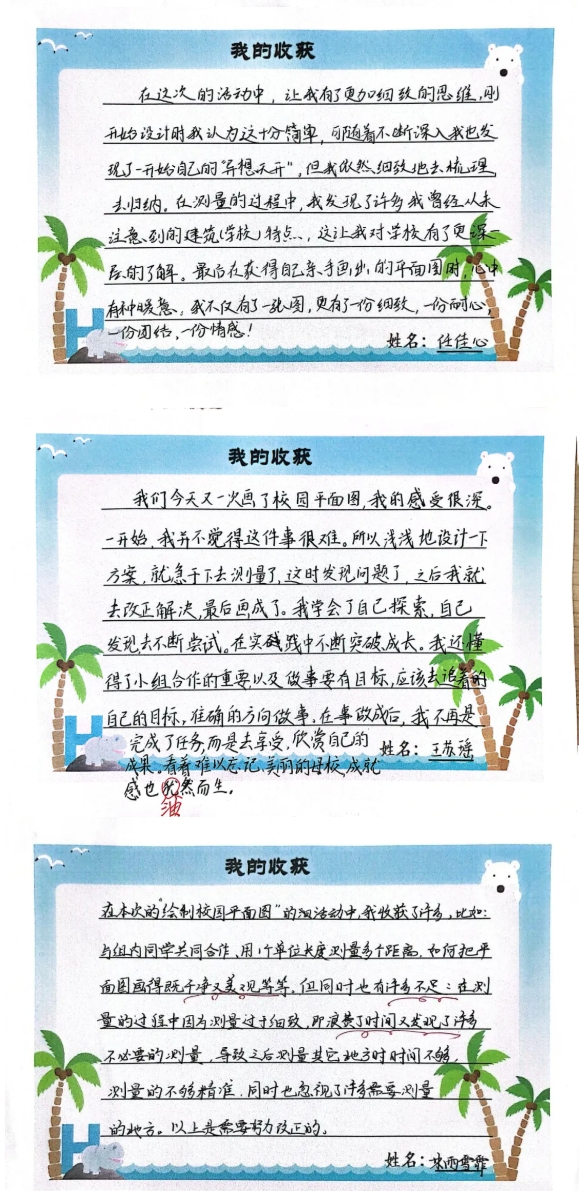 我的收获
在这次的活动中，让我有了更加细致的思维，刚
开始设计时我认为这十分简单，可随着不断深入我也发
现了一开始自己的"异想天开"，但我依然细致地去梳理，
去归纳。在测量的过程中，我发现了许多我曾经从未
注意到的建筑（学校）特点，这让我对学校有了更深一
层的了解。最后在获得自己亲手画出的平面图时，心中
有种暖意。我不仅有了一张图，更有了一份细致，一份耐心，
一份团结，一份情感！
姓名：任佳心
我的收获
我们今天又一次画了校园平面图，我的感受很深。
一开始，我并不觉得这件事很难。所以浅浅地设计一下
方案，就急于下去测量了，这时发现问题了，之后我就
去改正解决，最后画成了。我学会了自己探索，自己
发现去不断尝试。在实践中不断突破成长。我还懂
得了小组合作的重要以及做事要有目标，应该去追着的
自己的目标，准确的方向做事，在事做成后，我不再是
完成了任务，而是去享受，欣赏自己的
姓名：王苏谣
成果。看着难以忘记、美丽的母校，成就
感也犹然而生。
油
我的收获
在本次的"绘制校园平面图"的活动中，我收获了许多，比如：
与组内同学共同合作、用1个单位长度测量多个距离、如何把平
面图画得既干净又美观等等。但同时也有许多不足：在测
量的过程中因为测量过于细致，即浪费了时间又发现了许多
不必要的测量，导致之后测量其它地方时时间不够，
测量的不够精准．同时也忽视了许多需要测量
的地方。以上是需要努力改正的。
姓名：雨霏